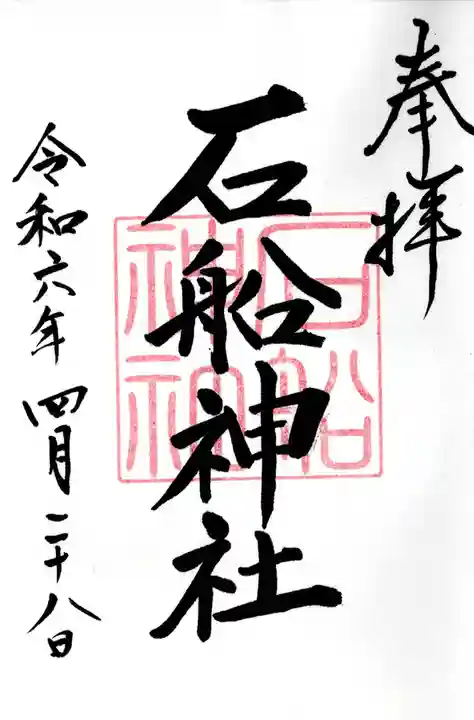 奉拝
石船神社
令和六年四月二十八日
石船神社